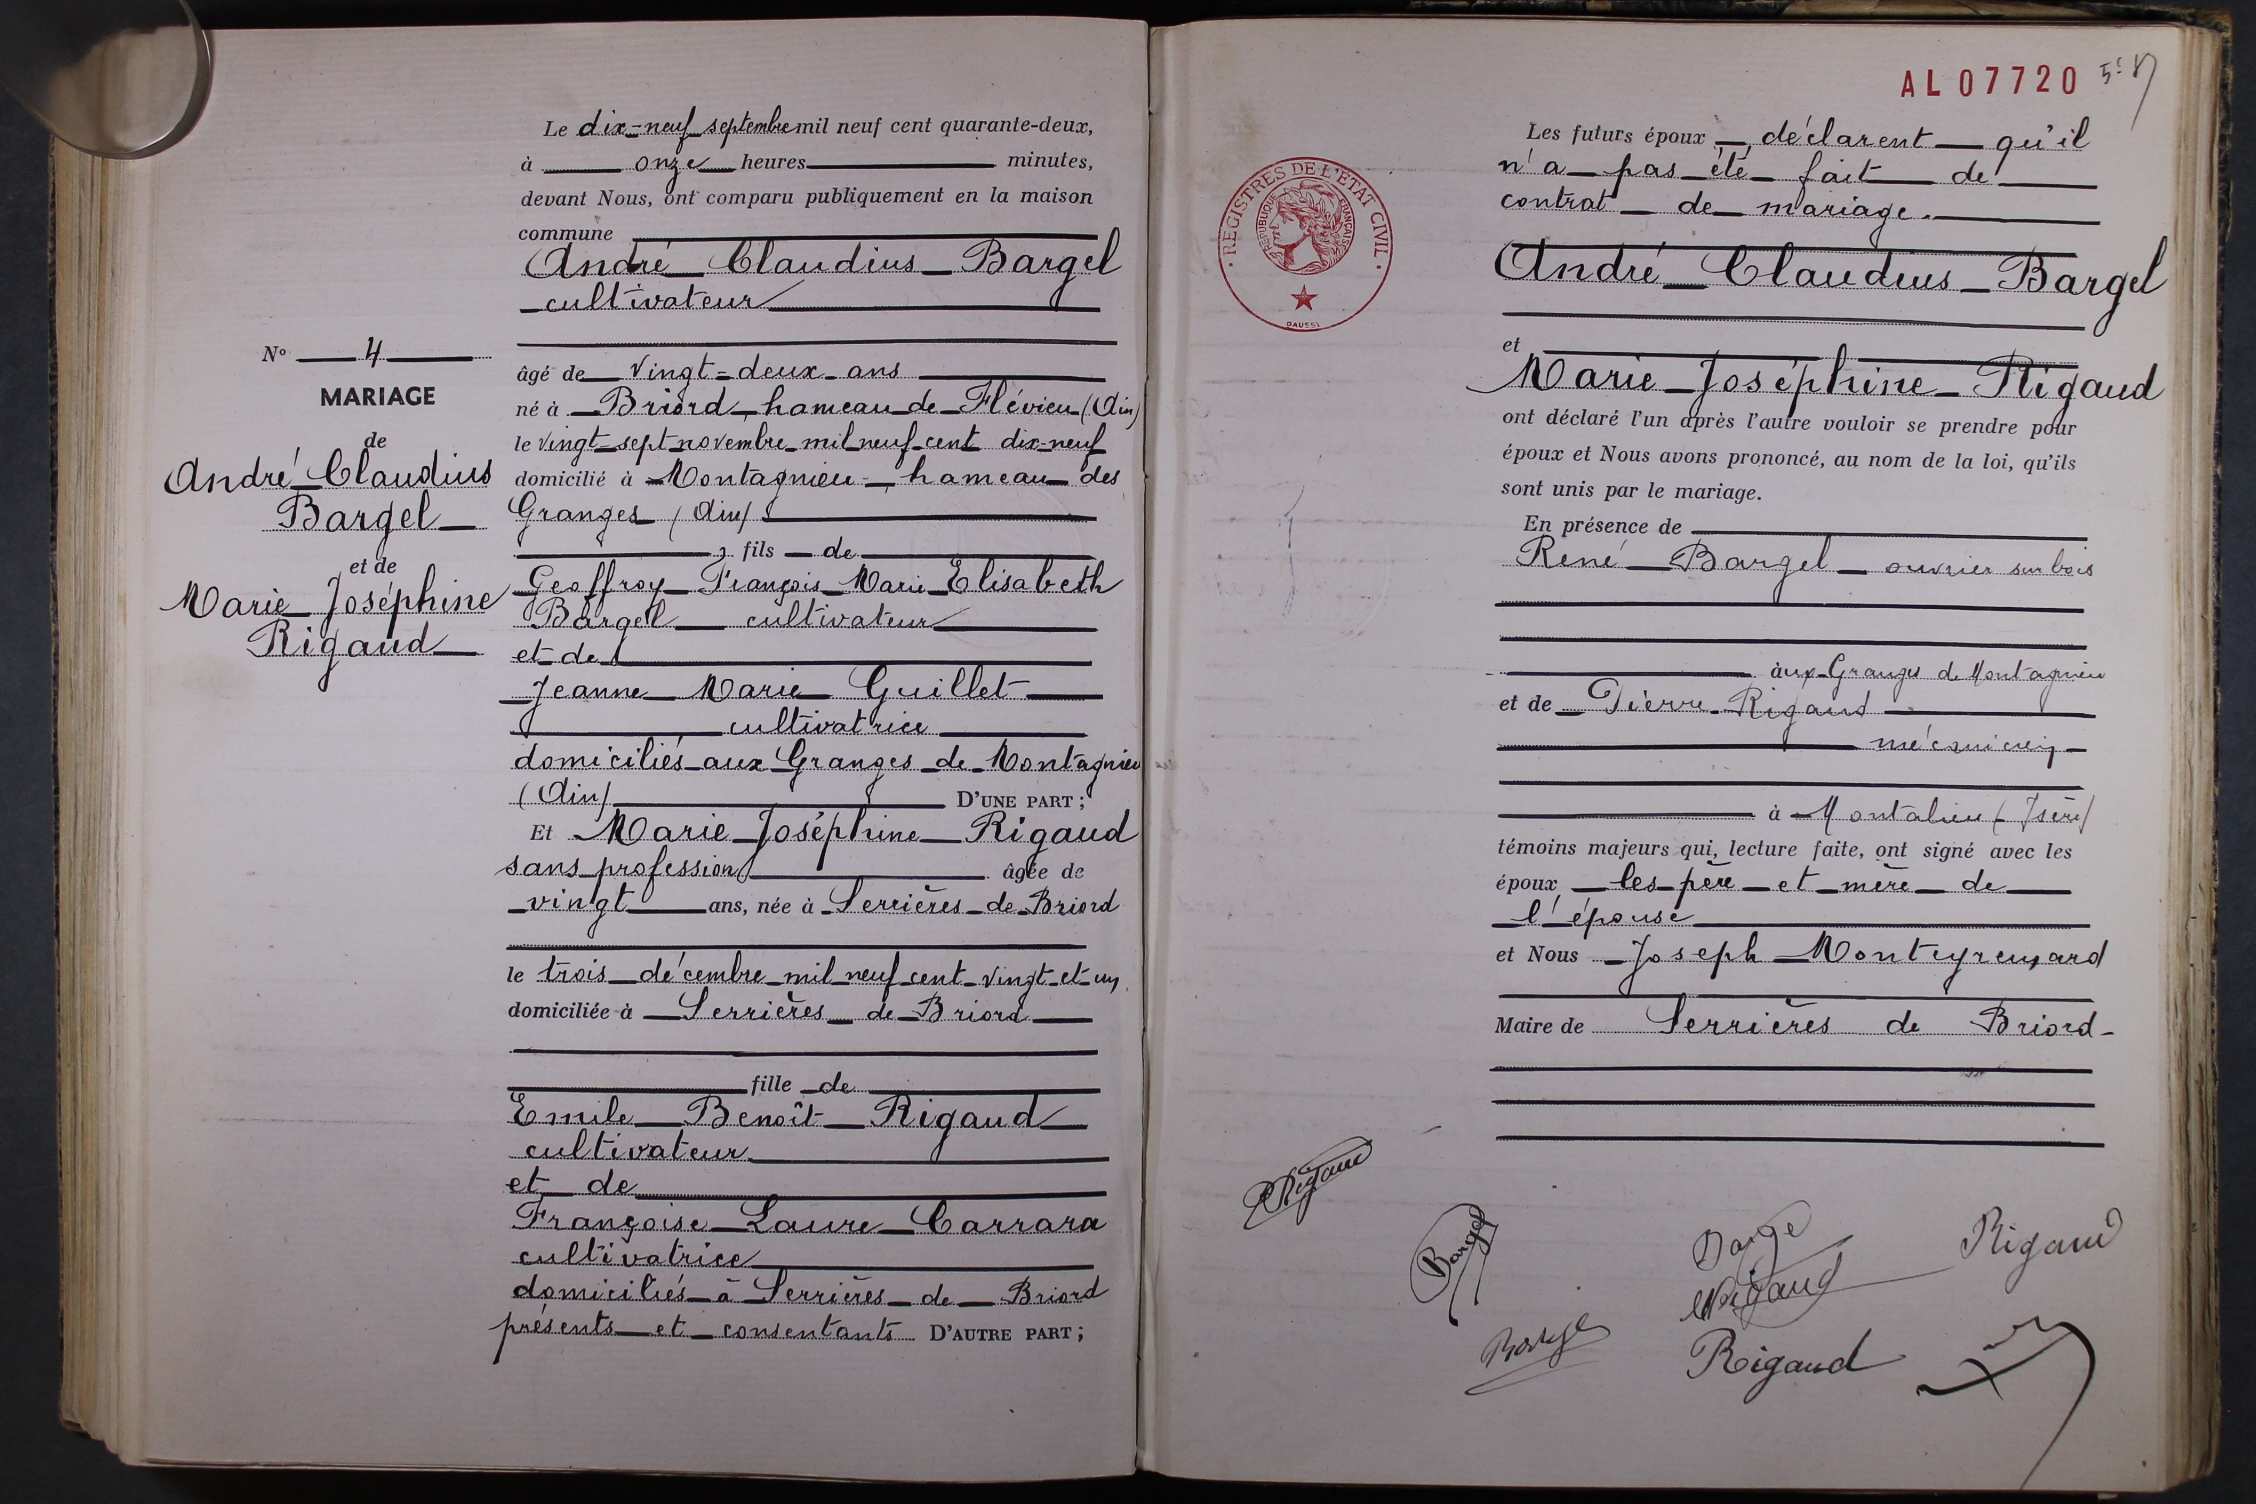 Le dix-neuf septembre mil neuf cent quarante-deux,
à onze heures minutes,
devant Nous, ont comparu publiquement en la maison
commune
André Claudius Bargel
cultivateur
N° 4
MARIAGE
de
André Claudius
Bargel
et de
Marie Joséphine
Rigaud
âgé de vingt-deux ans
né à Briord hameau de Flévieu (Ain)
le vingt-sept novembre mil neuf cent dix-neuf
domicilié à Montagnieu - hameau des
Granges (Ain)
, fils de
Geoffroy François Marie Elisabeth
Bargel cultivateur
et de
Jeanne Marie Guillet
cultivatrice
domiciliés aux Granges de Montagnieu
(Ain) D'UNE PART ;
Et Marie Joséphine Rigaud
sans profession âgée de
vingt ans, née à Serrières de Briord
le trois décembre mil neuf cent vingt et un
domiciliée à Serrières de Briord
fille de
Emile Benoît Rigaud
cultivateur
et de
Françoise Laure Carrara
cultivatrice
domiciliés à Serrières de Briord
présents et consentants D'AUTRE PART ;
AL 07720
REGISTRES DE L'ÉTAT CIVIL
RÉPUBLIQUE FRANÇAISE
DAUSSI
Les futurs époux déclarent qu'il
n'a pas été fait de
contrat de mariage.
André Claudius Bargel
et
Marie Joséphine Rigaud
ont déclaré l'un après l'autre vouloir se prendre pour
époux et Nous avons prononcé, au nom de la loi, qu'ils
sont unis par le mariage.
En présence de
René Bargel ouvrier sur bois
aux Granges de Montagnieu
et de Pierre Rigaud
mécanicien
à Montalieu (Isère)
témoins majeurs qui, lecture faite, ont signé avec les
époux les père et mère de
l'épouse
et Nous Joseph Monteyremard
Maire de Serrières de Briord
Rigaud
Bargel
Rigaud
Rigaud
Rigaud